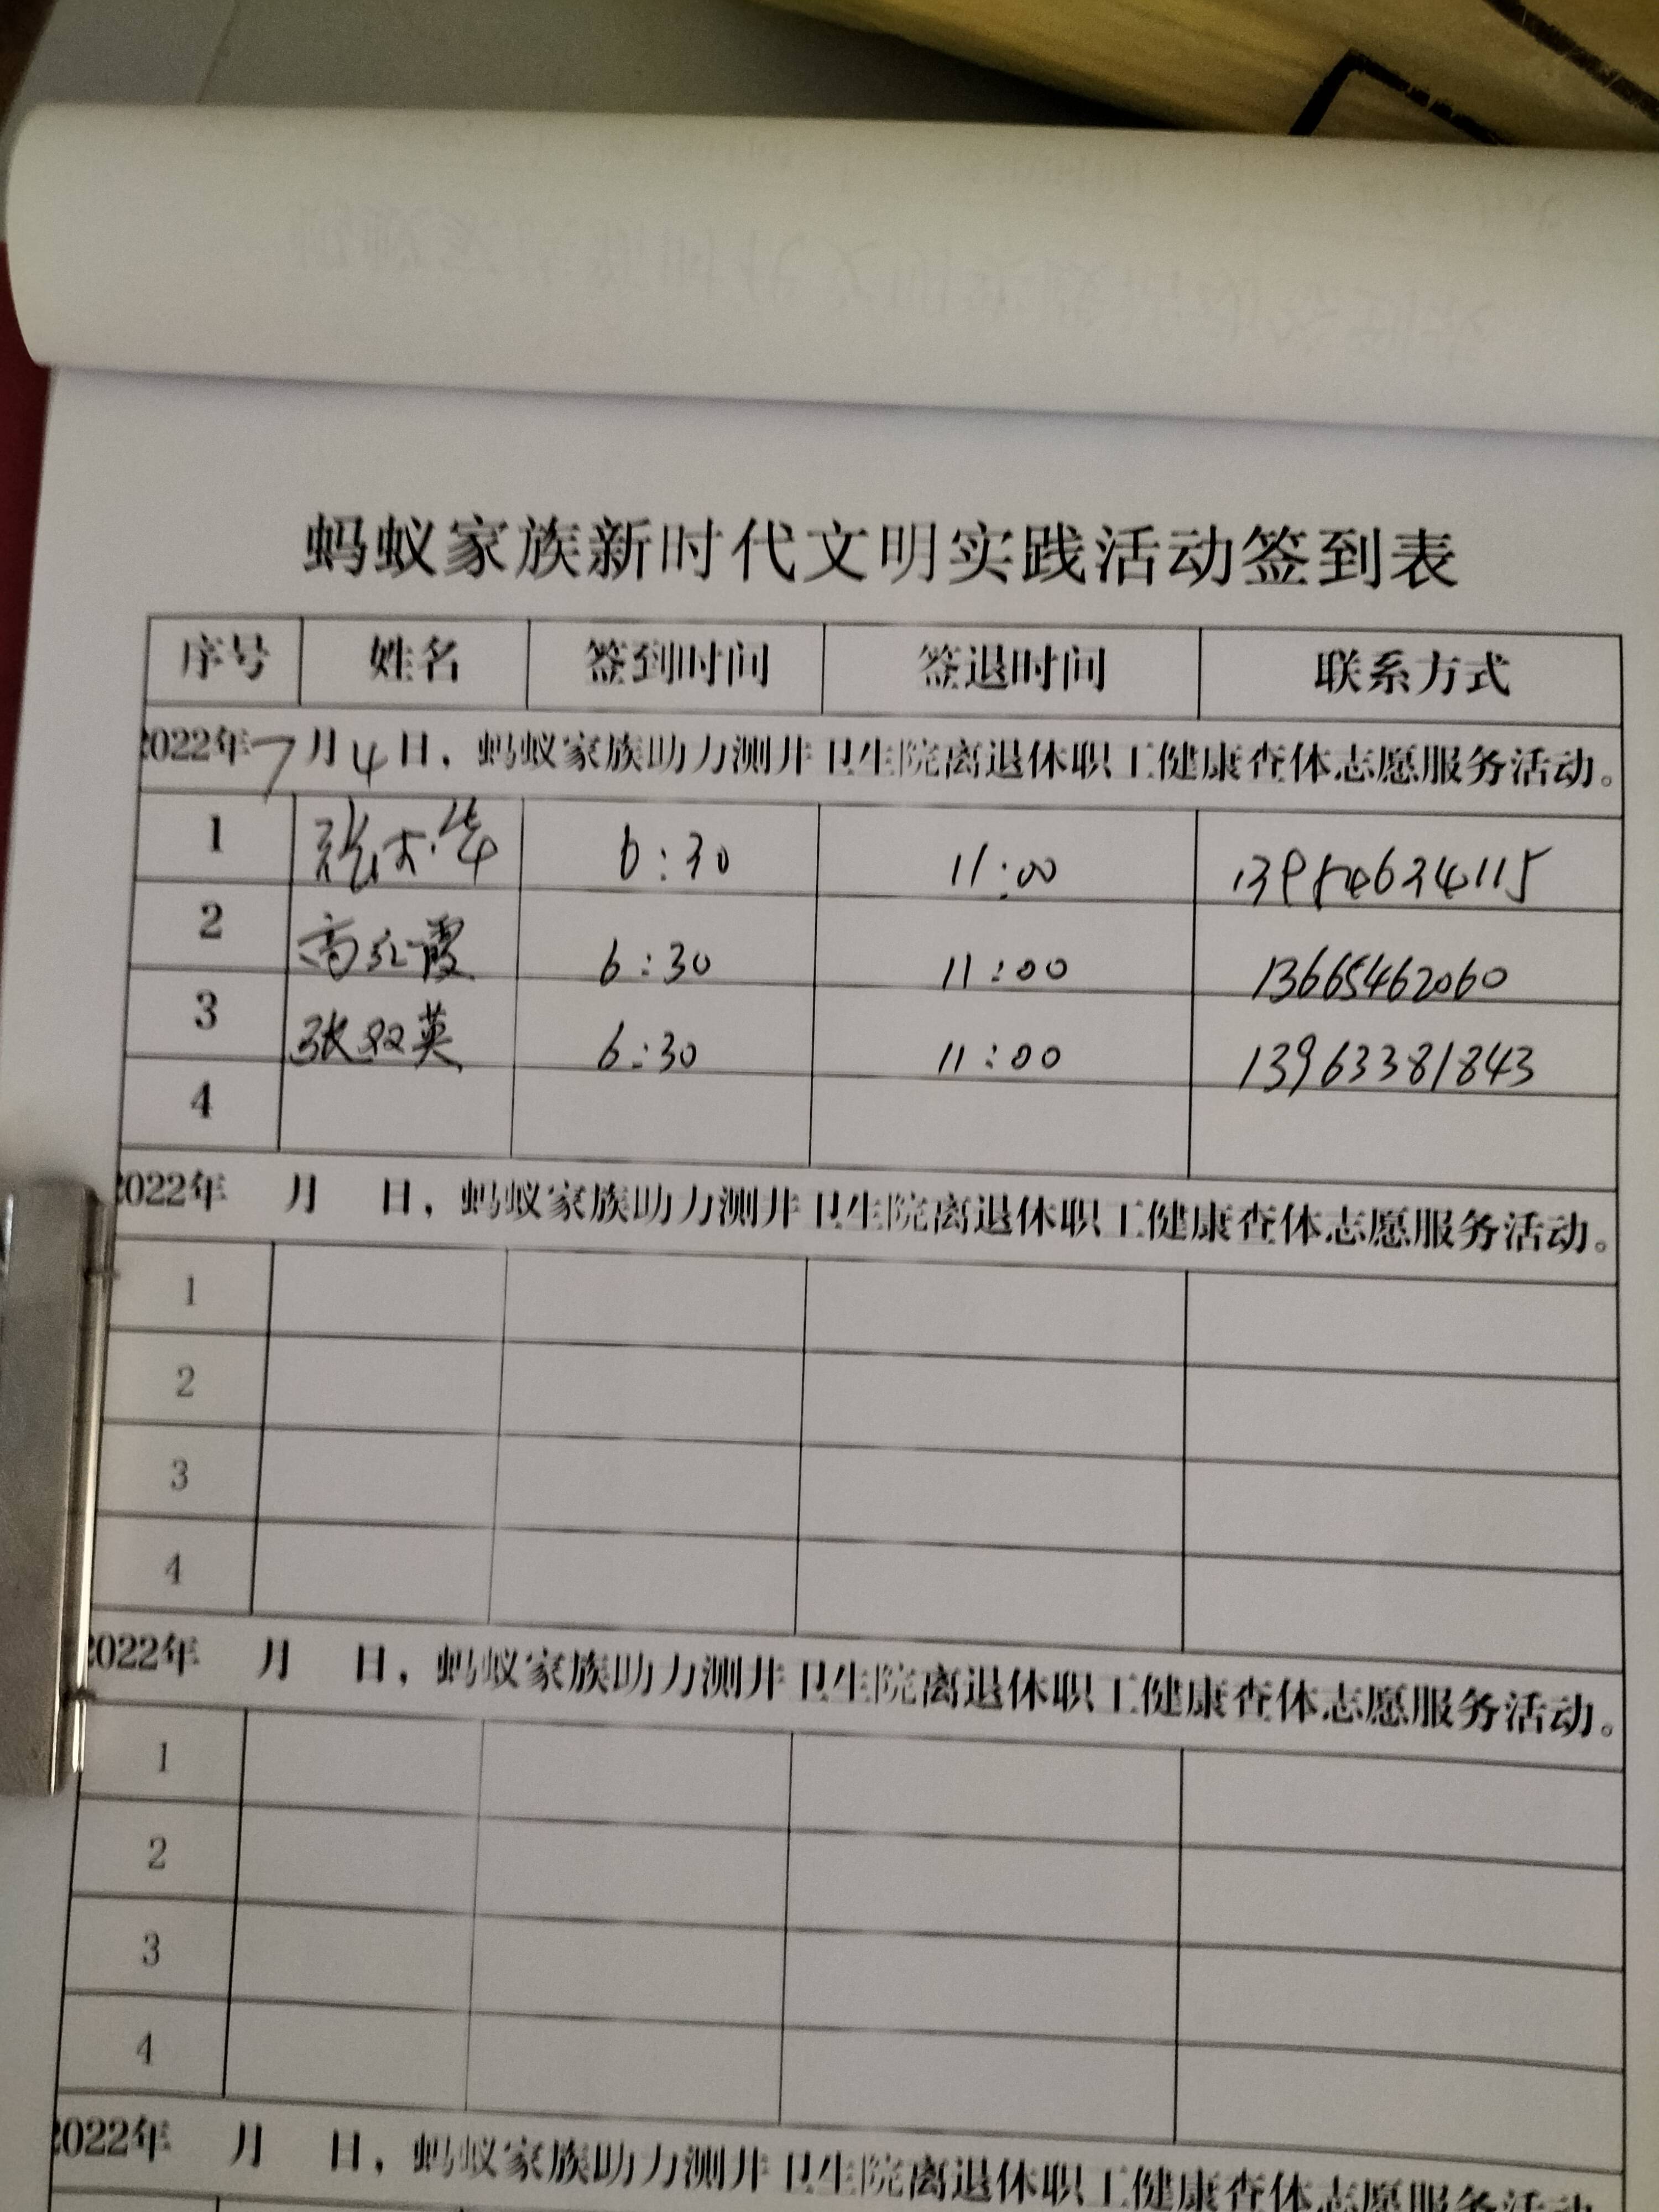 蚂蚁家族新时代文明实践活动签到表
序号 姓名 签到时间 签退时间 联系方式
2022年7月4日，蚂蚁家族助力测井卫生院离退休职工健康查体志愿服务活动。
1 张 6:30 11:00
2 高红霞 6:30 11:00 13665462060
3 张双英 6:30 11:00 13963381843
4
2022年 月 日，蚂蚁家族助力测井卫生院离退休职工健康查体志愿服务活动。
1
2
3
4
2022年 月 日，蚂蚁家族助力测井卫生院离退休职工健康查体志愿服务活动。
1
2
3
4
2022年 月 日，蚂蚁家族助力测井卫生院离退休职工健康查体志愿服务活动